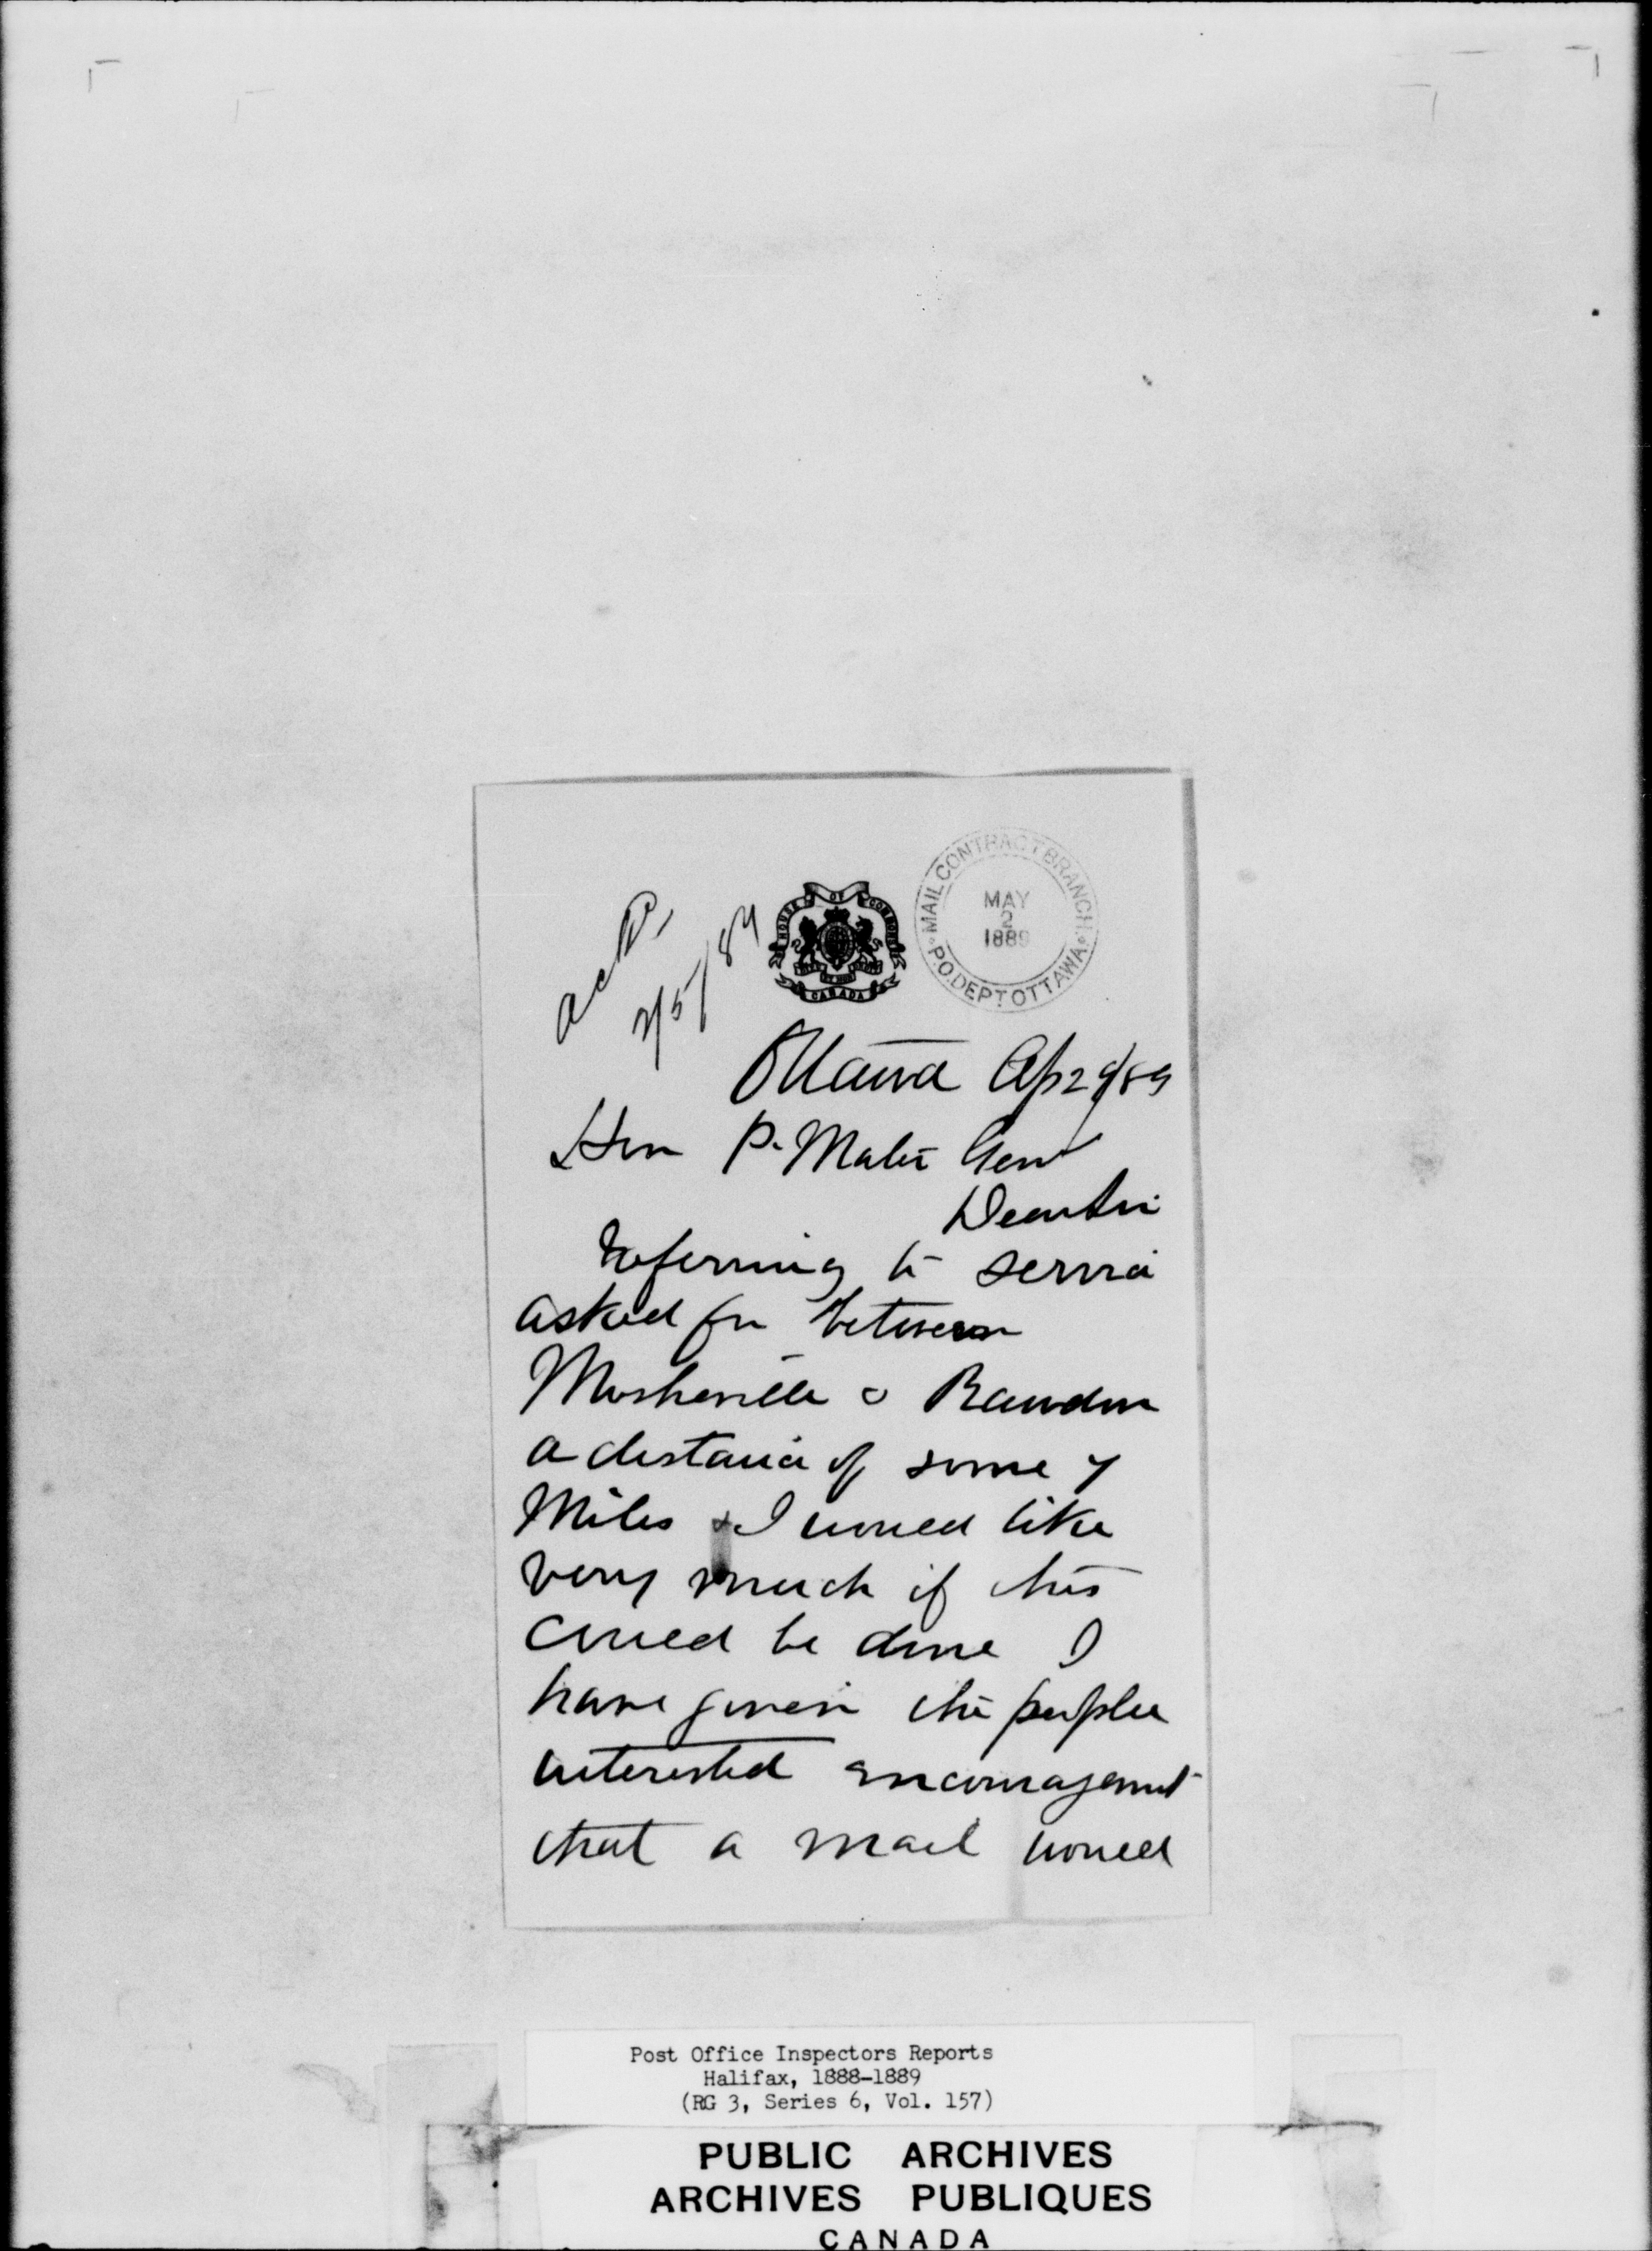 ackd
2/5/89
HOUSE OF COMMONS
CANADA
MAIL CONTRACT BRANCH
MAY
2
1889
P.O. DEPT. OTTAWA
Ottawa Ap 29/89
Hon P. Mastr Genl
Dear Sir
Referring to service
asked for between
Mosherville & Rawdon
a distance of some 7
Miles & I would like
very much if this
could be done I
have given the people
interested encouragemnt
that a mail would
Post Office Inspectors Reports
Halifax, 1888-1889
(RG 3, Series 6, Vol. 157)
PUBLIC ARCHIVES
ARCHIVES PUBLIQUES
CANADA